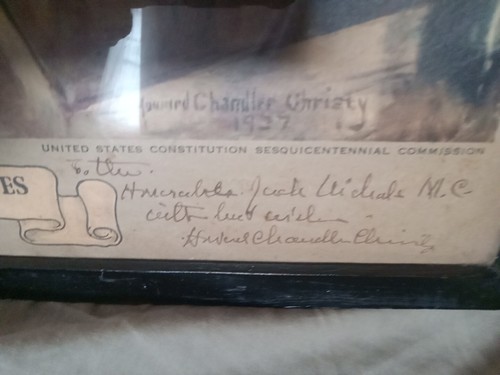 Howard Chandler Christy
1937
UNITED STATES CONSTITUTION SESQUICENTENNIAL COMMISSION
ES
To the
Honorable Jack Nichols M.C.
with best wishes
Howard Chandler Christy